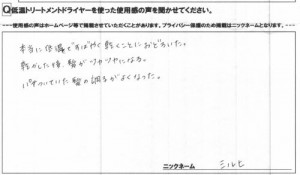 Q低温トリートメントドライヤーを使った使用感の声を聞かせてください。
使用感の声はホームページ等で掲載させていただくことがあります。プライバシー保護のため掲載はニックネームとなります。
本当に低温ですばやく乾くことにおどろいた。
乾かした後、髪がツヤツヤになる。
パサついていた髪の調子がよくなった。
ニックネーム シルヒ